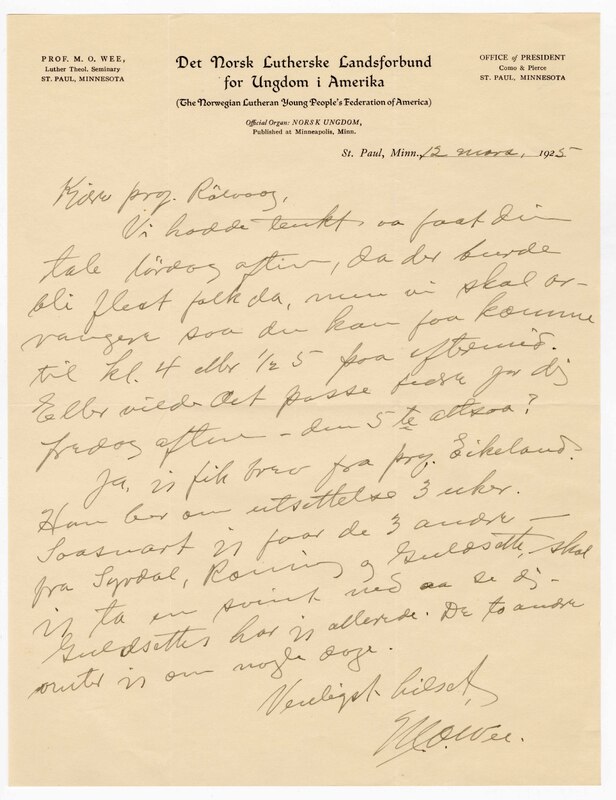 PROF. M. O. WEE,
Luther Theol. Seminary
ST. PAUL, MINNESOTA
Det Norsk Lutherske Landsforbund
for Ungdom i Amerika
(The Norwegian Lutheran Young People's Federation of America)
Official Organ: NORSK UNGDOM,
Published at Minneapolis, Minn.
OFFICE of PRESIDENT
Como & Pierce
ST. PAUL, MINNESOTA
St. Paul, Minn., 12 mars, 1925
Kjære prof. Rölvaag,
Vi hadde tenkt aa faat din
tale lördag aften, da der burde
bli flest folk da, men vi skal ar-
rangere saa du kan faa komme
til kl. 4 eller ½ 5 paa eftermid.
Eller vilde det passe bedre for dig
fredag aften – den 5te altsaa?
Ja, jeg fik brev fra prof. Eikeland.
Han ber om utsettelse 3 uker.
Saasnart jeg faar de 3 andre –
fra Syrdal, Röning og Guldseth, skal
jeg ta en svint ned aa se dig –
Guldseths har jeg allerede. De to andre
venter jeg om nogle dage.
Venligst hilset,
M.O. Wee.